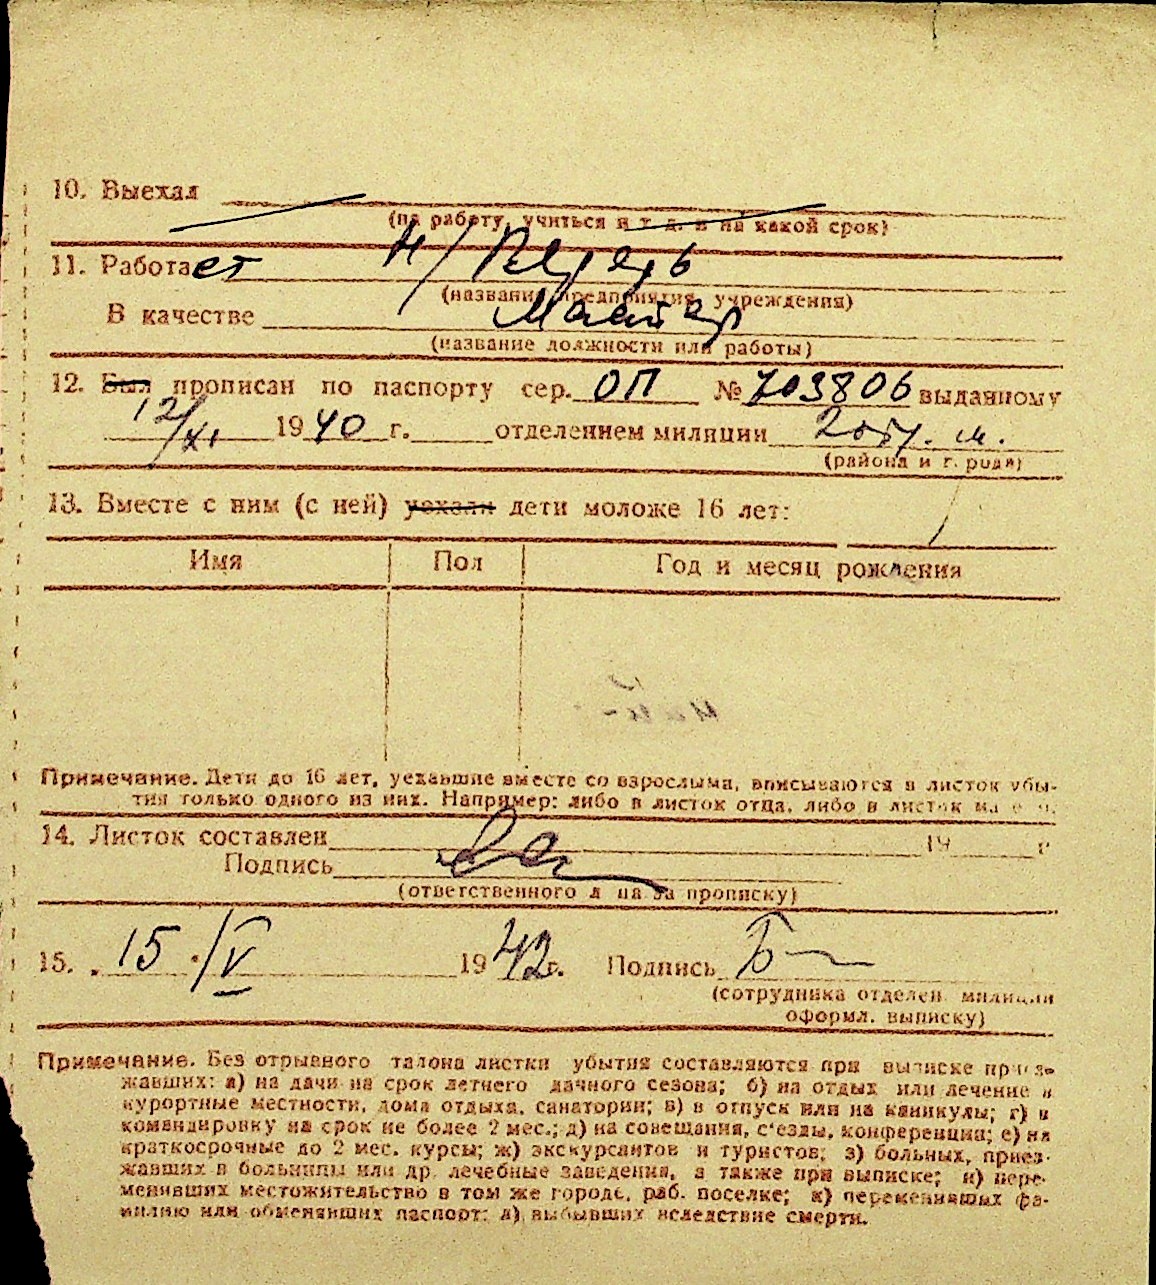 10. Выехал
(на работу, учиться и т. д. и на какой срок)
11. Работает
(название предприятия, учреждения)
В качестве
(название должности или работы)
12. Был прописан по паспорту сер. ОП № 703806 выданному
12/XI 1940 г. отделением милиции 20 м.
(района и города)
13. Вместе с ним (с ней) уехали дети моложе 16 лет:
Имя Пол Год и месяц рождения
Примечание. Дети до 16 лет, уехавшие вместе со взрослыми, вписываются в листок убы-
тия только одного из них. Например: либо в листок отца, либо в листок матери.
14. Листок составлен 19 г
Подпись
(ответственного лица за прописку)
15. 15/V 1942 г. Подпись
(сотрудника отделен. милиции
оформл. выписку)
Примечание. Без отрывного талона листки убытия составляются при выписке приез-
жавших: а) на дачи на срок летнего дачного сезона; б) на отдых или лечение в
курортные местности, дома отдыха, санатории; в) в отпуск или на каникулы; г) в
командировку на срок не более 2 мес.; д) на совещания, с'езды, конференции; е) на
краткосрочные до 2 мес. курсы; ж) экскурсантов и туристов; з) больных, приез-
жавших в больницы или др. лечебные заведения, а также при выписке; и) пере-
менивших местожительство в том же городе, раб. поселке; к) переменивших фа-
милию или обменявших паспорт; л) выбывших вследствие смерти.